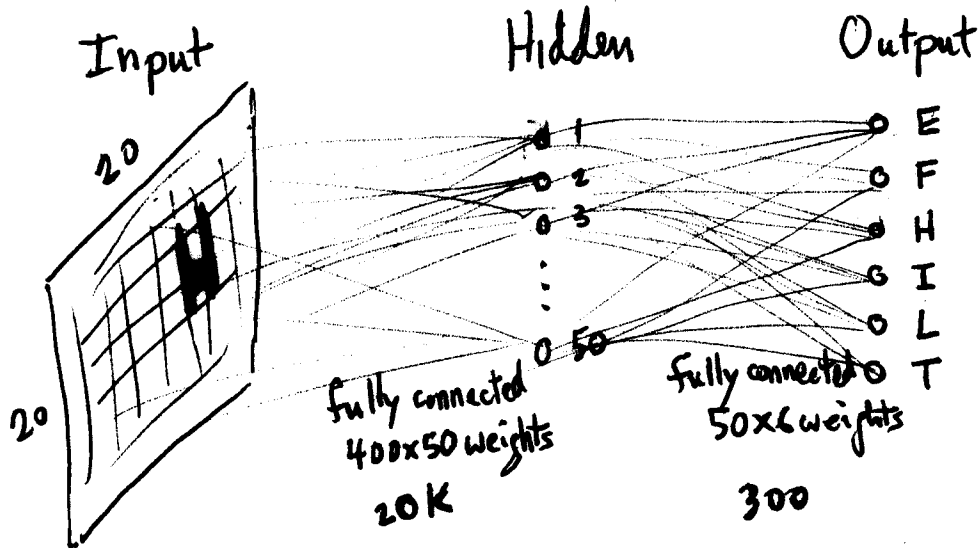 Input
Hidden
Output
20
20
1
2
3
50
E
F
H
I
L
T
fully connected
400x50 weights
20K
fully connected
50x6 weights
300